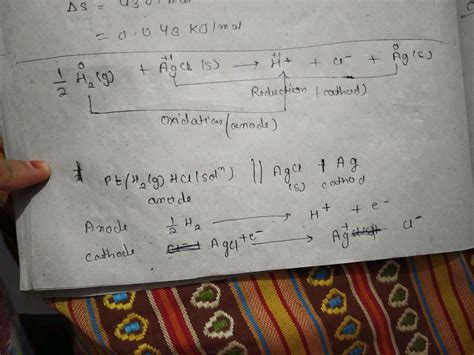 ΔS =
= 0.048 KJ/mol
0 +1 +1 0
1/2 H₂(g) + AgCl(s) → H+ + Cl⁻ + Ag(s)
Reduction (cathod)
Oxidation (anode)
Pt/H₂(g) HCl(solⁿ) || AgCl | Ag
(s)
anode cathod
Anode 1/2 H₂ → H⁺ + e⁻
cathode AgCl + e⁻ → Ag + Cl⁻